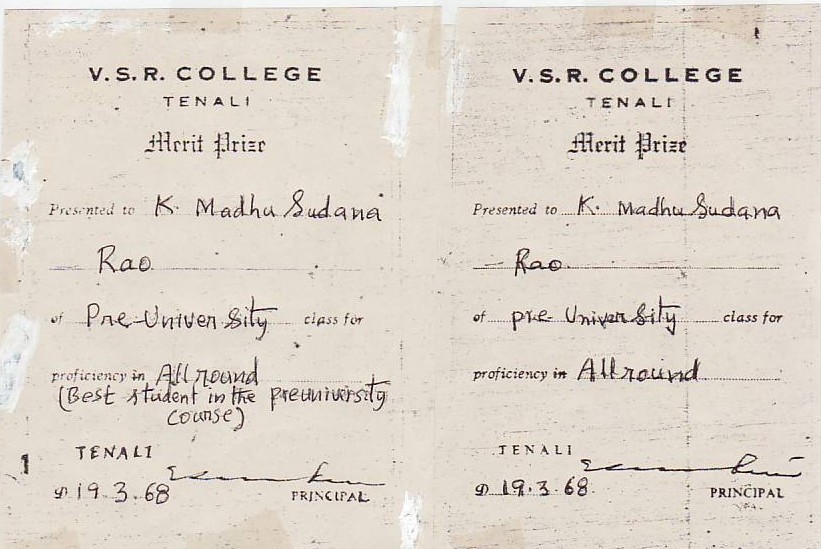 V.S.R. COLLEGE
TENALI
Merit Prize
Presented to K. Madhu Sudana
Rao
of Pre-University class for
proficiency in Allround
(Best student in the preuniversity
course)
1
TENALI
D 19.3.68
PRINCIPAL
V.S.R. COLLEGE
TENALI
Merit Prize
Presented to K. Madhu Sudana
Rao
of pre-University class for
proficiency in Allround
TENALI
D 19.3.68
PRINCIPAL